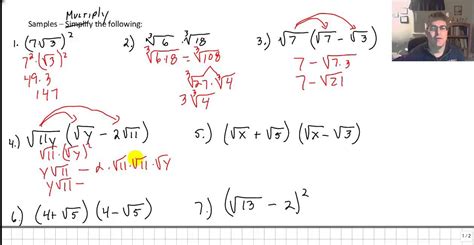 Multiply
Samples – Simplify the following:
1. (7√3)²
7²·(√3)²
49.3
147
2.) ³√6 · ³√18
³√6·18 = ³√108
³√27·³√4
3 ³√4
3.) √7 (√7 – √3)
7 – √7.3
7 – √21
4.) √11y (√y – 2√11)
√11·(√y)²
y√11 – 2·√11·√11·√y
y√11 –
5.) (√x + √5) (√x – √3)
6) (4+√5) (4–√5)
7.) (√13 – 2)²
1/2